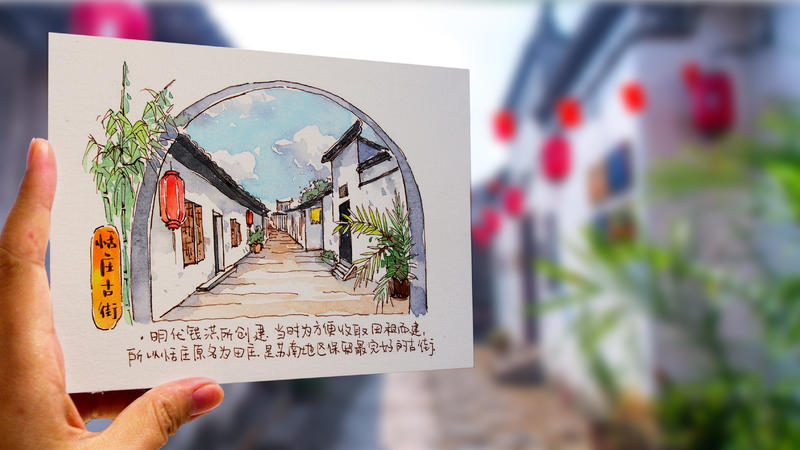 恬庄古街
明代钱洪所创建,当时为方便收取田租而建,
所以恬庄原名为田庄,是苏南地区保留最完好的古街.